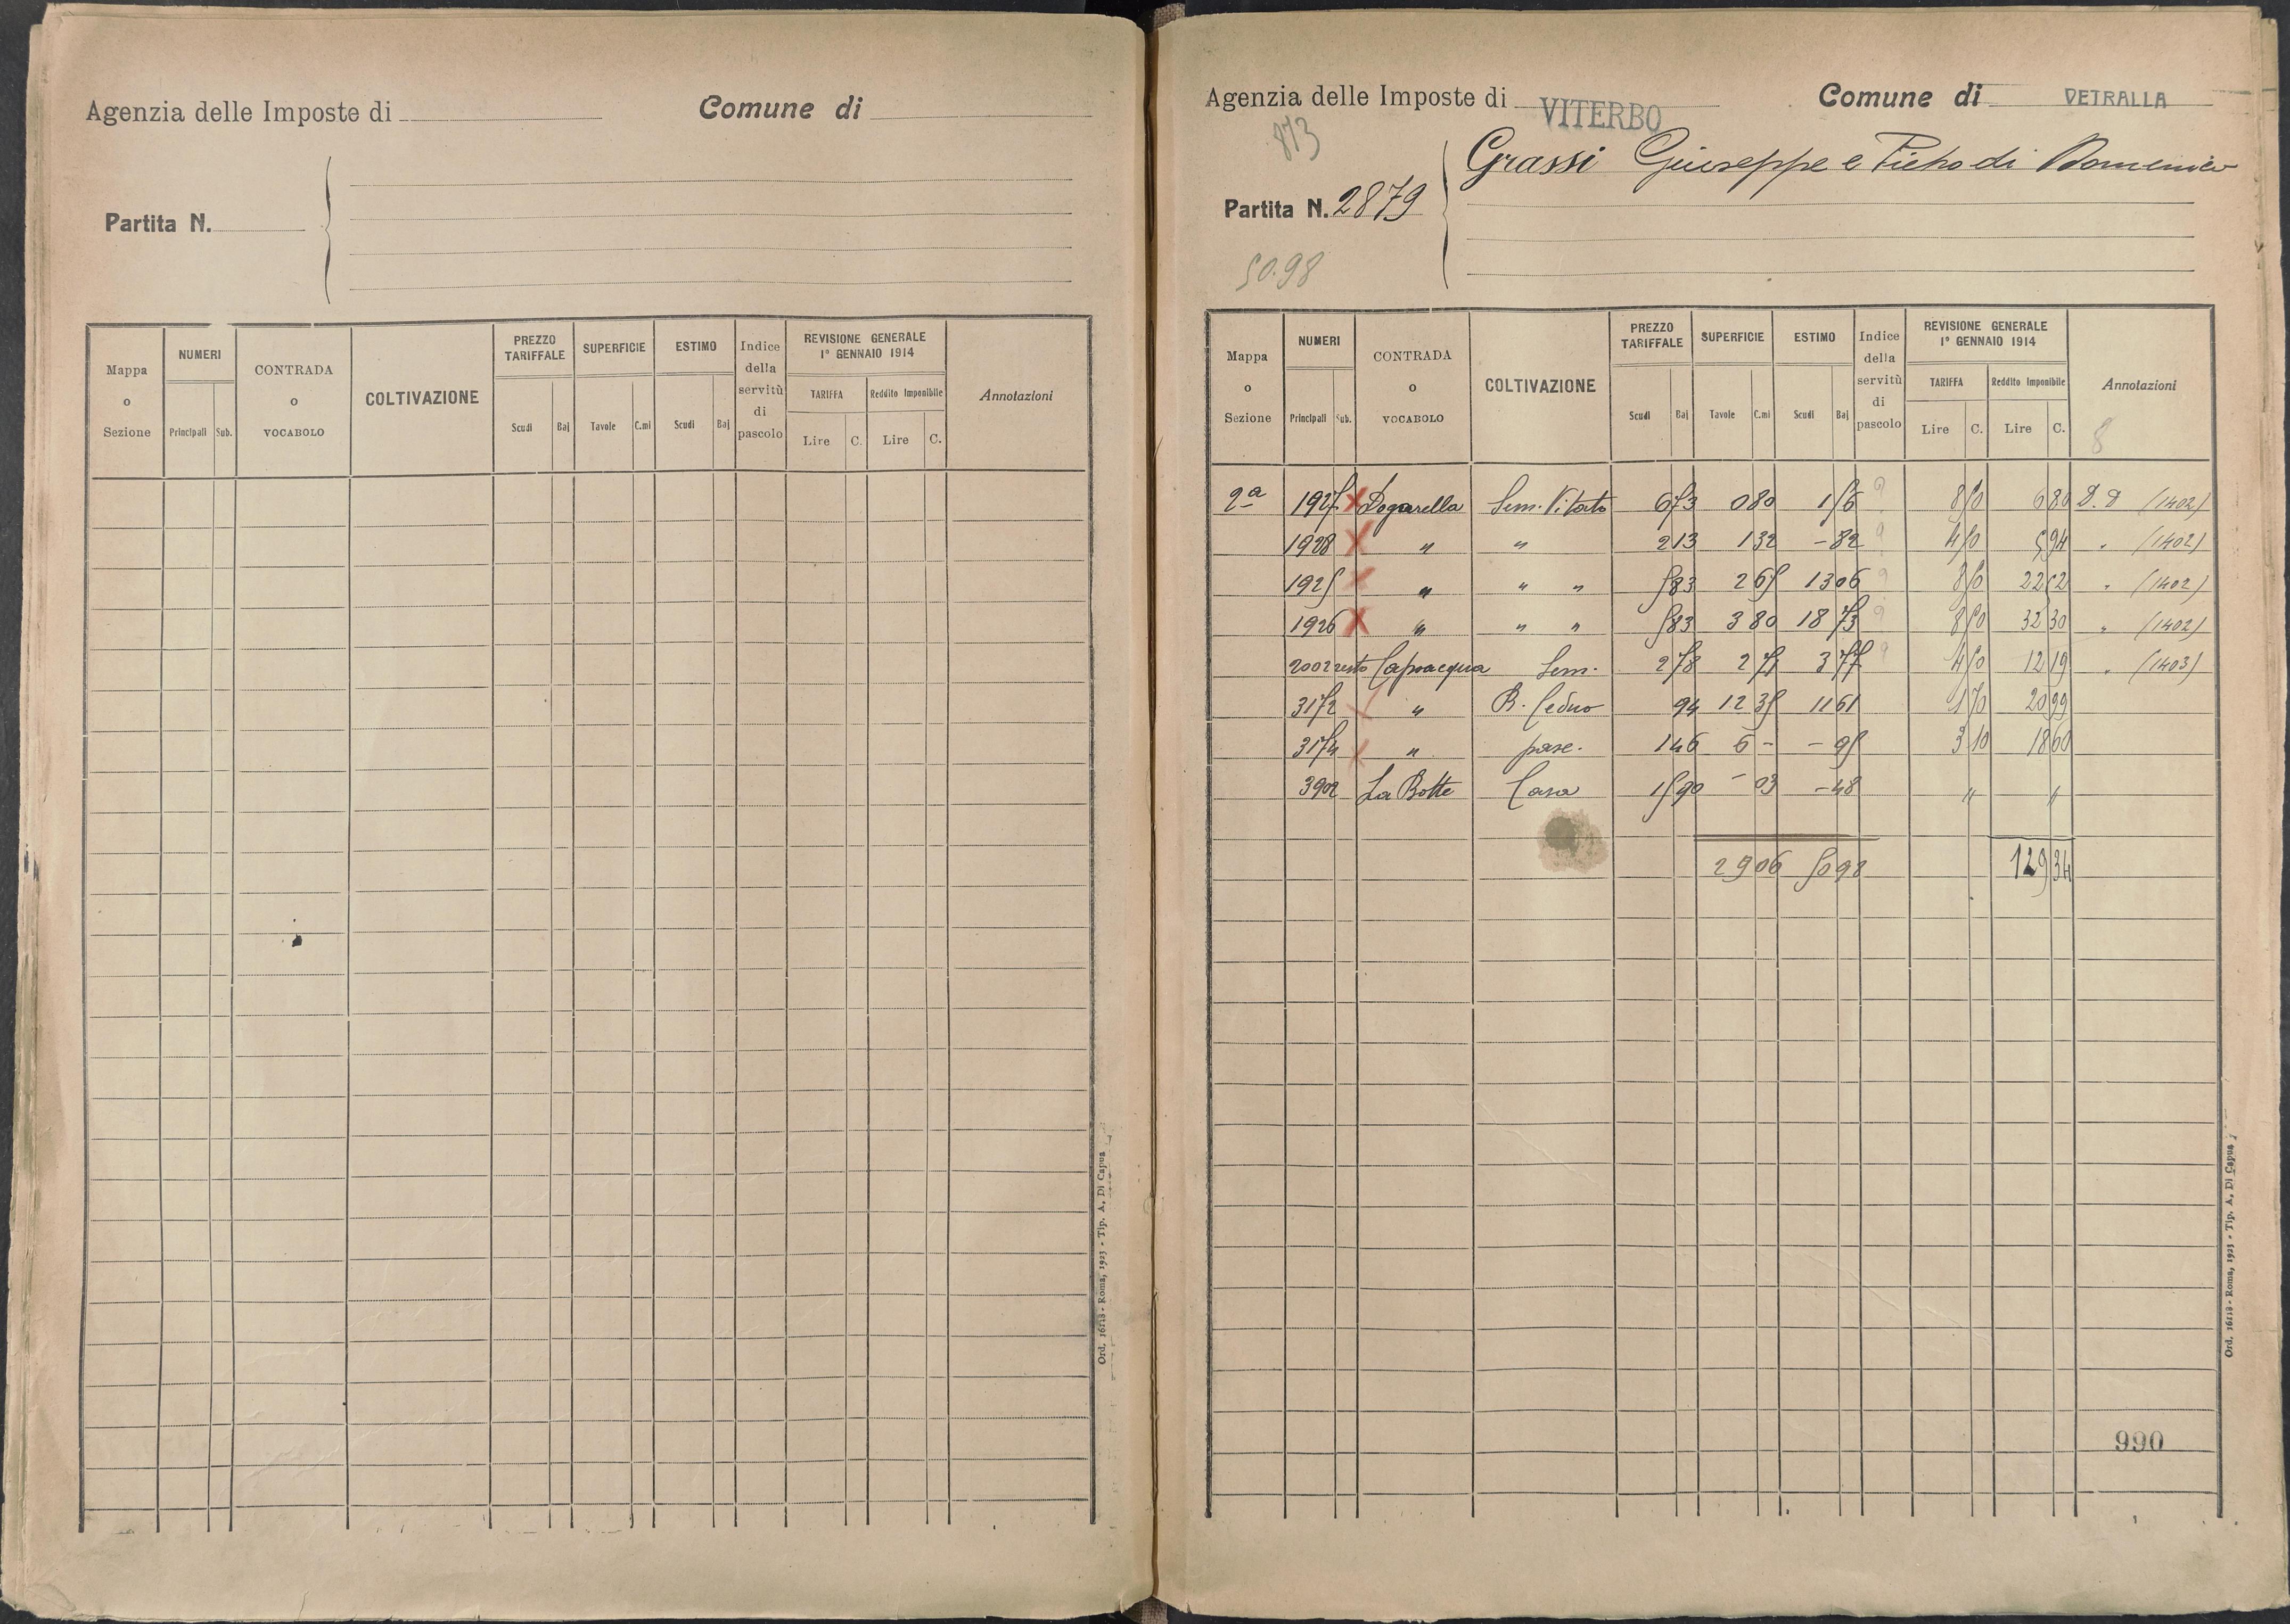 Agenzia delle Imposte di
Comune di
Partita N.
Mappa o Sezione
NUMERI
Principali Sub.
CONTRADA o VOCABOLO
COLTIVAZIONE
PREZZO TARIFFALE
Scudi Baj
SUPERFICIE
Tavole C.mi
ESTIMO
Scudi Baj
Indice della servitù di pascolo
REVISIONE GENERALE 1° GENNAIO 1914
TARIFFA Reddito Imponibile
Lire C. Lire C.
Annotazioni
Ord. 16118 - Roma, 1923 - Tip. A. Di Capua
Agenzia delle Imposte di VITERBO
Comune di VETRALLA
873
Grassi Giuseppe e Pietro di Domenico
Partita N. 2879
50.98
Mappa o Sezione
NUMERI
Principali Sub.
CONTRADA o VOCABOLO
COLTIVAZIONE
PREZZO TARIFFALE
Scudi Baj
SUPERFICIE
Tavole C.mi
ESTIMO
Scudi Baj
Indice della servitù di pascolo
REVISIONE GENERALE 1° GENNAIO 1914
TARIFFA Reddito Imponibile
Lire C. Lire C.
Annotazioni
8
2a 1927 Dogarella Sem. Vitato 6 73 0 80 1 56 9 8 50 6 80 D. D (1402)
1928 " " 2 13 1 32 - 82 9 4 50 5 94 " (1402)
1925 " " " 5 83 2 65 13 06 9 8 50 22 52 " (1402)
1926 " " " 5 83 3 80 18 73 9 8 50 32 30 " (1402)
2002 resto Capracqua Sem. 2 78 2 71 3 77 9 4 50 12 19 " (1403)
3172 " B. Ceduo 94 12 35 11 61 1 70 20 99
3174 " pasc. 1 46 6 - - 95 3 10 18 60
3902 La Botte Casa 15 90 - 03 - 48 " "
29 06 50 98 129 34
990
Ord. 16118 - Roma, 1923 - Tip. A. Di Capua